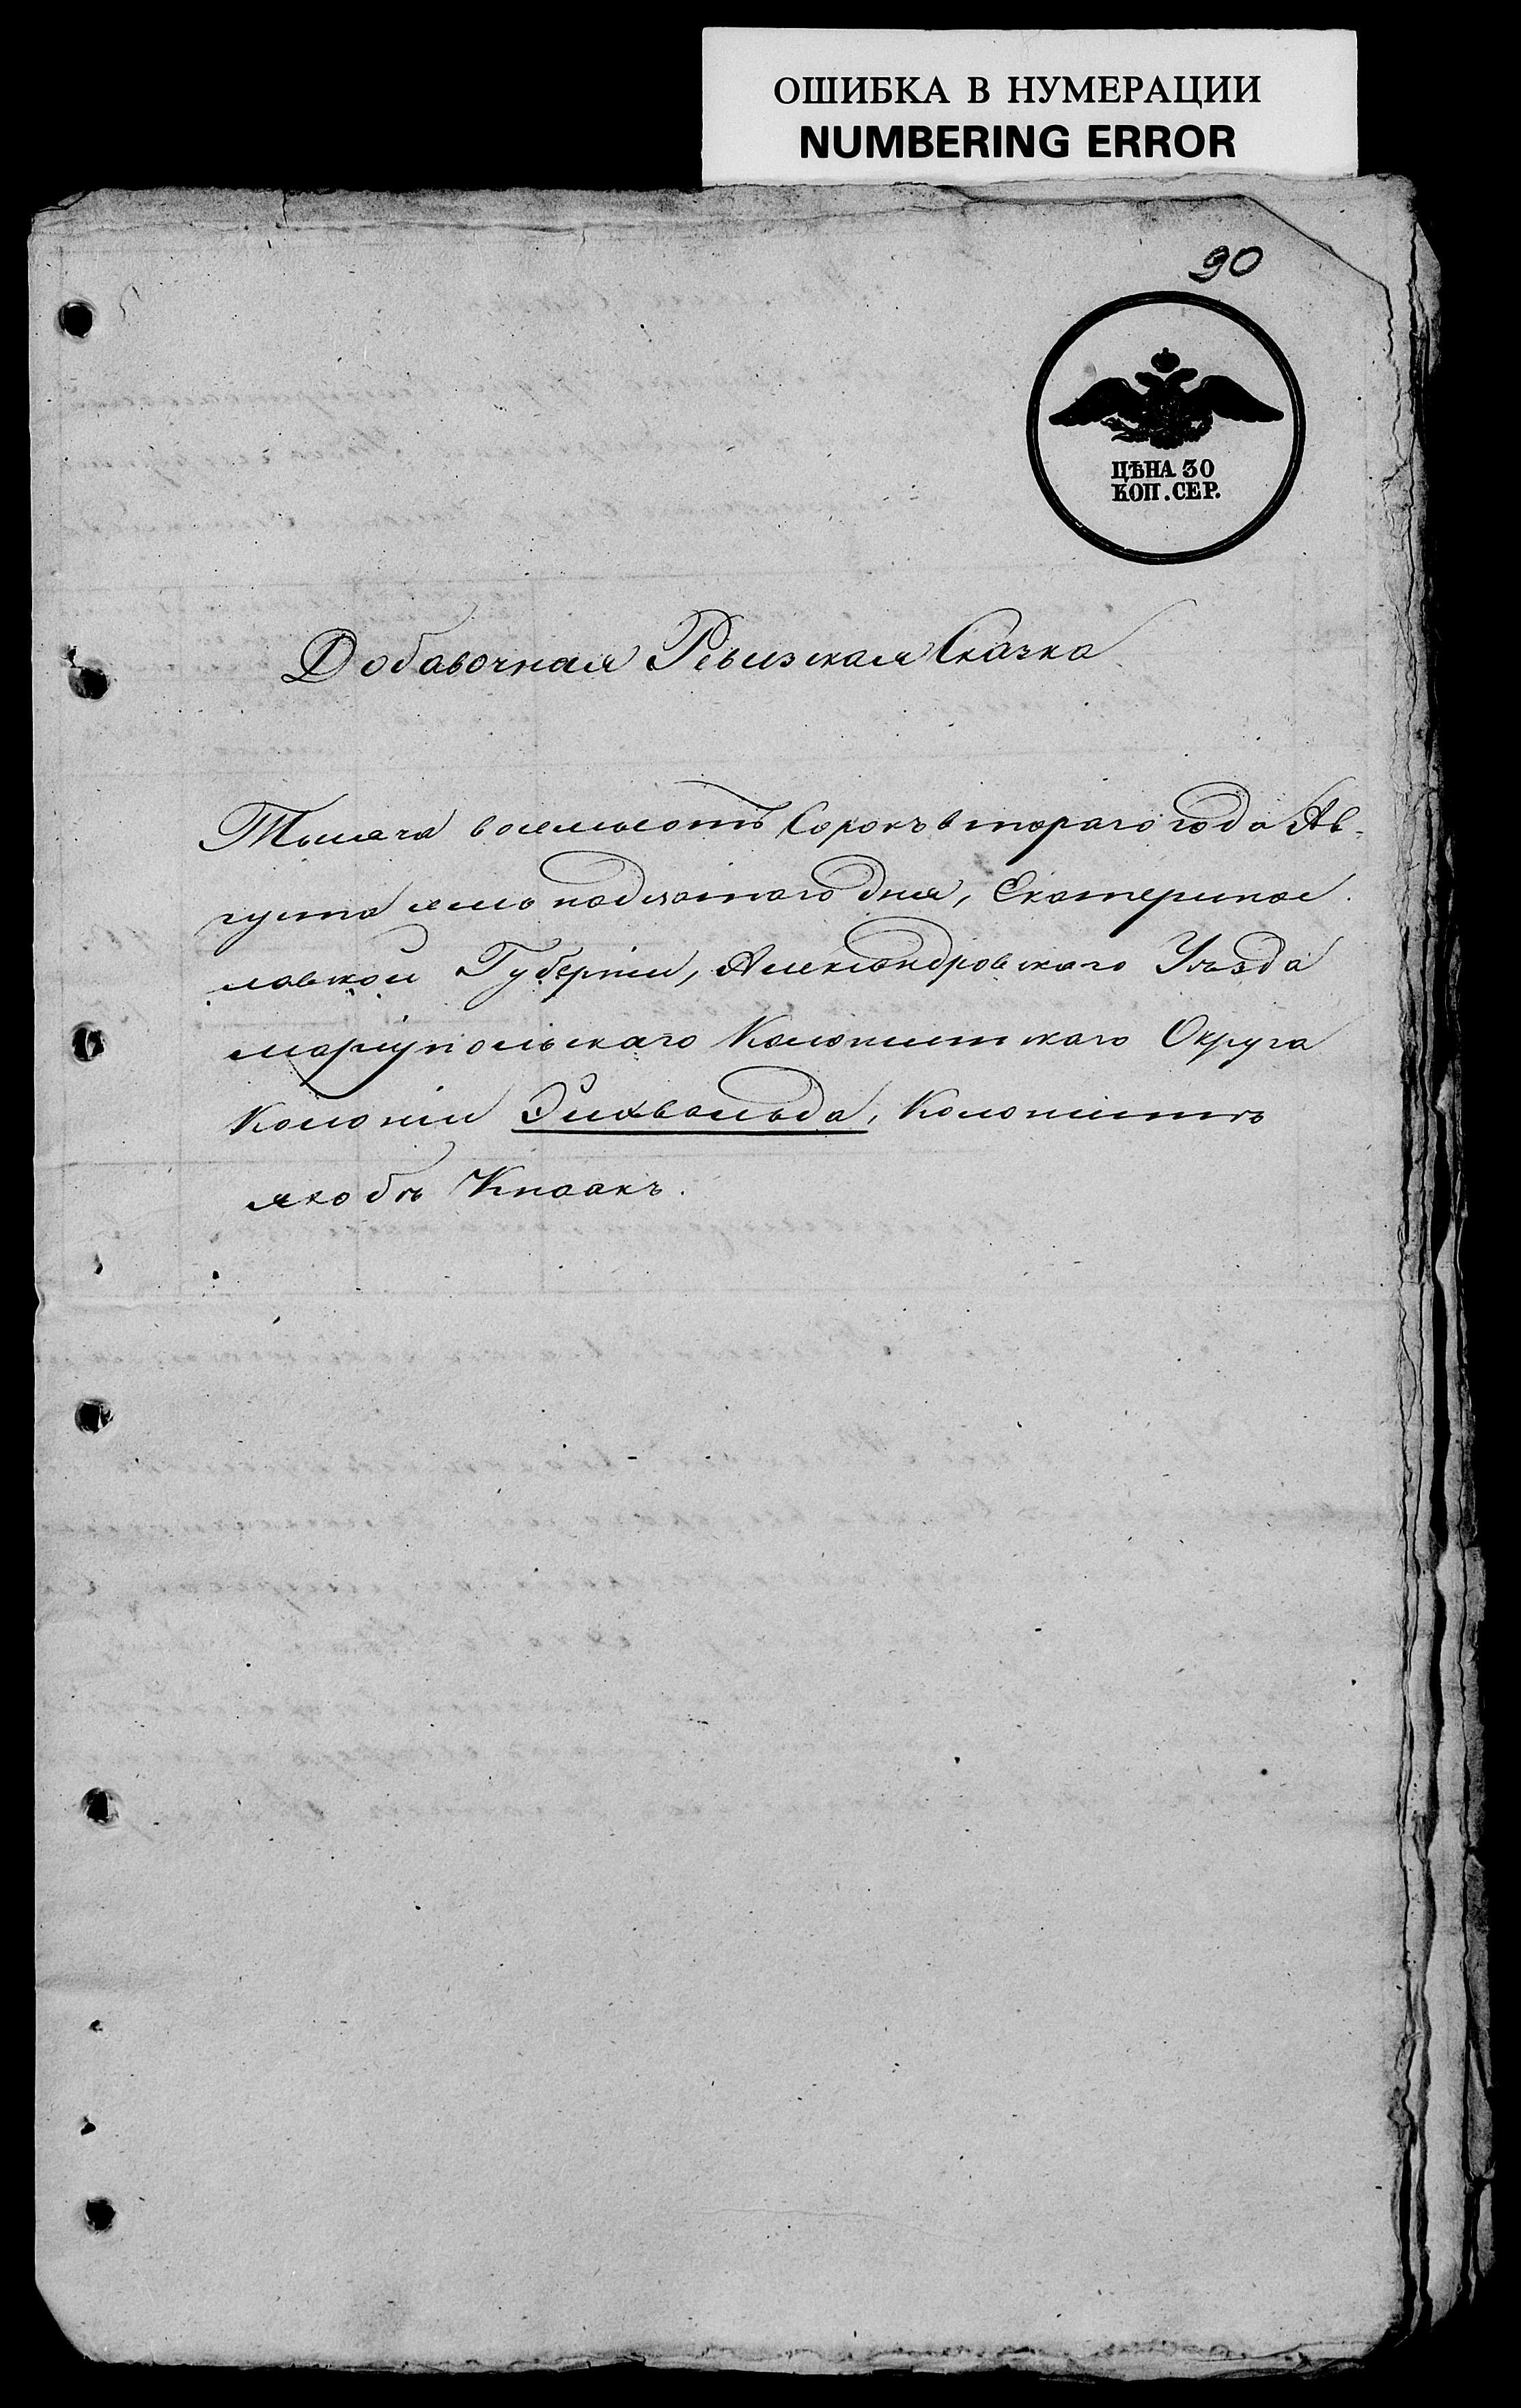 ОШИБКА В НУМЕРАЦИИ
NUMBERING ERROR
90
ЦѢНА 30
КОП. СЕР.
Добавочная Ревизская Сказка
Тысяча восемьсотъ Сорокъ втораго года Ав-
густа семьнадцатаго дня, Екатеринос
лавской Губерніи, Александровскаго Уѣзда
Маріупольскаго Колонистскаго Округа
Колоніи Эйхвальда, Колонистъ
Якобъ Кнаакъ.